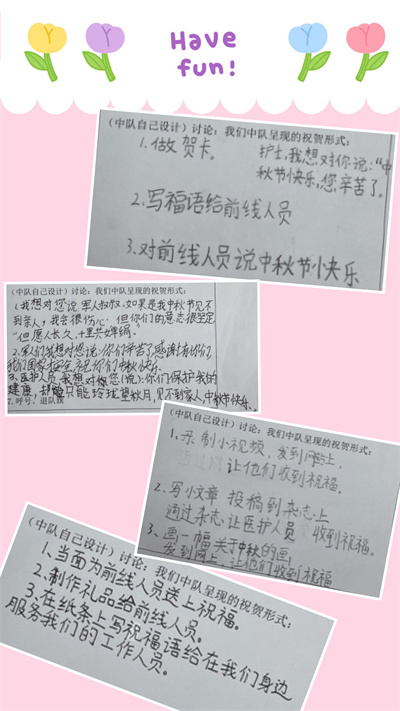 Have
fun!
(中队自己设计)讨论：我们中队呈现的祝贺形式：
1.做贺卡。
护士,我想对你说:“中
秋节快乐,您辛苦了。
2.写福语给前线人员
3.对前线人员说中秋节快乐
(中队自己设计)讨论：我们中队呈现的祝贺形式：
1.我想对您说军人叔叔,如果是我中秋节见不
到亲人,我会很伤心 但你们的意志很坚定
“但愿人长久,千里共婵娟”
2.军人们我想对您说:你们辛苦了感谢有你们
我们国家 祝你们中秋快乐
3.医护人员我想对您(说):你们保护我的
健康 却只能 玲珑望秋月,见不到家人,中秋节快乐。
7.呼号：退队
(中队自己设计)讨论：我们中队呈现的祝贺形式：
1.录制小视频,发到网站上,
让他们收到祝福。
2.写小文章 投稿到杂志上
通过杂志让医护人员 收到祝福。
3、画一幅关于中秋的画,
发到网上,让他们收到祝福
(中队自己设计)讨论：我们中队呈现的祝贺形式：
1.当面为前线人员送上祝福。
2.制作礼品给前线人员。
3.在纸条上写祝福语给在我们身边
服务我们的工作人员。